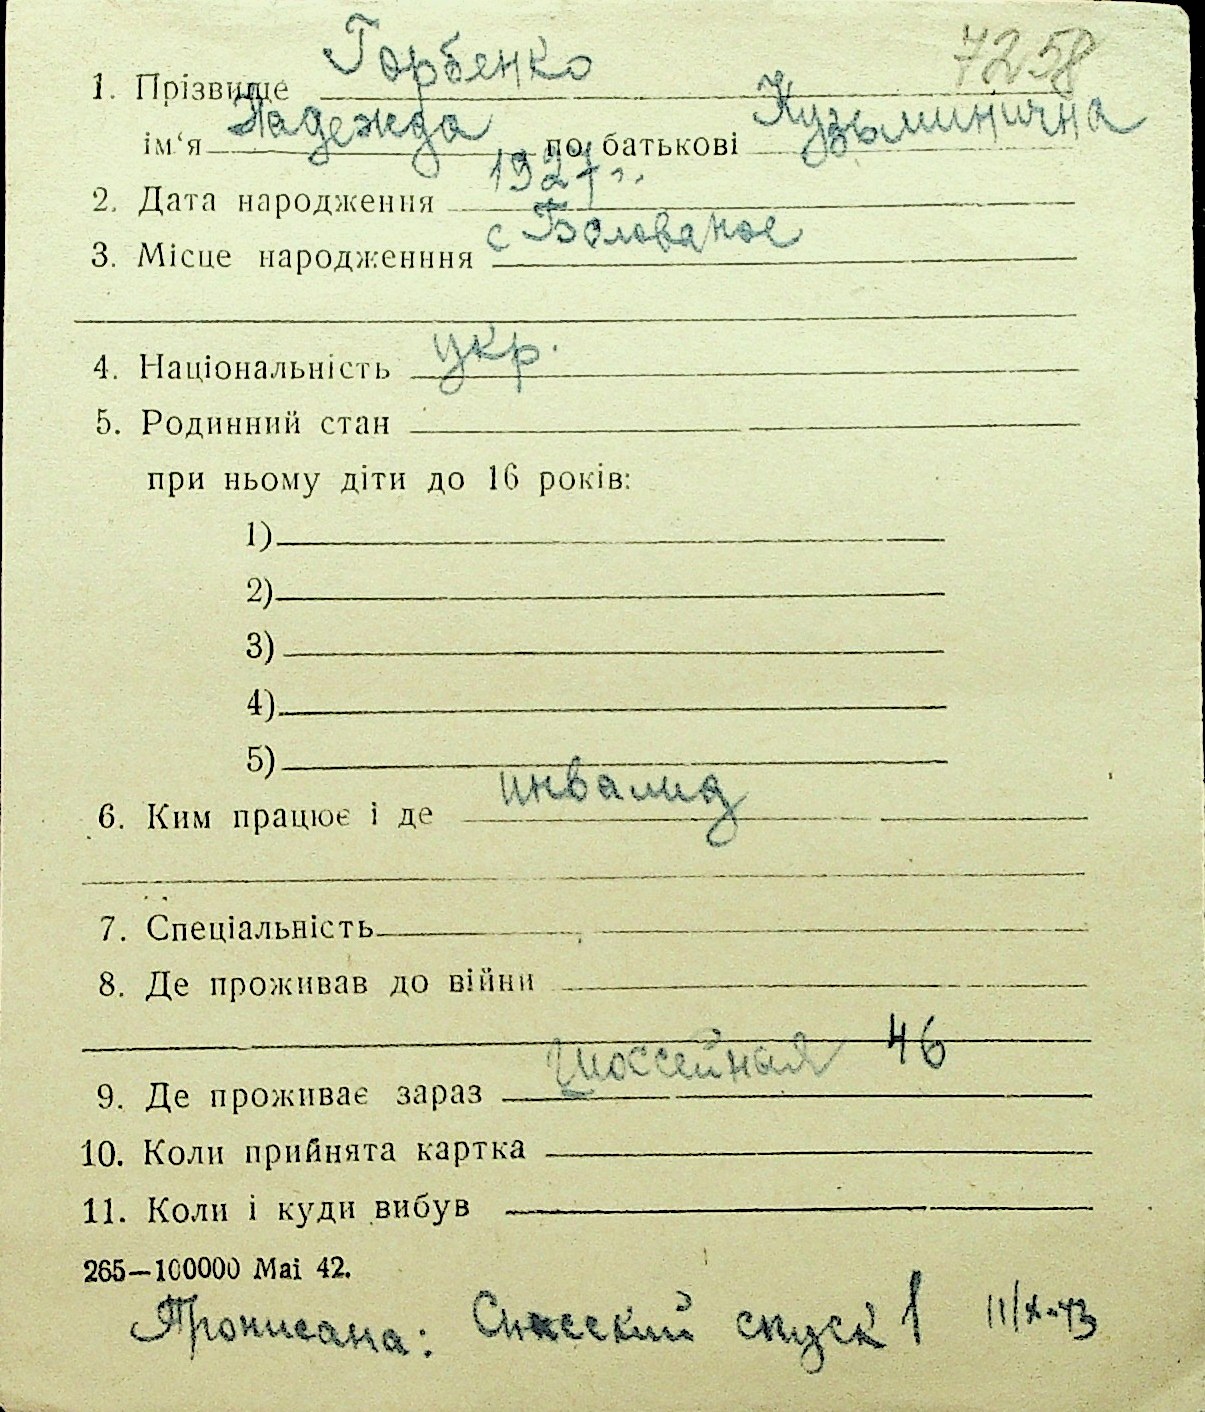 7258
1. Прізвище Горбенко
ім‘я Надежда по батькові Кузьминична
2. Дата народження 1927 г.
3. Місце народженння с Болованое
4. Національність укр.
5. Родинний стан
при ньому діти до 16 років:
1)
2)
3)
4)
5)
6. Ким працює і де инвалид
7. Спеціальність
8. Де проживав до війни
9. Де проживає зараз Шоссейная 46
10. Коли прийнята картка
11. Коли і куди вибув
265—100000 Mai 42.
Прописана: Спасский спуск 1 11/X-43